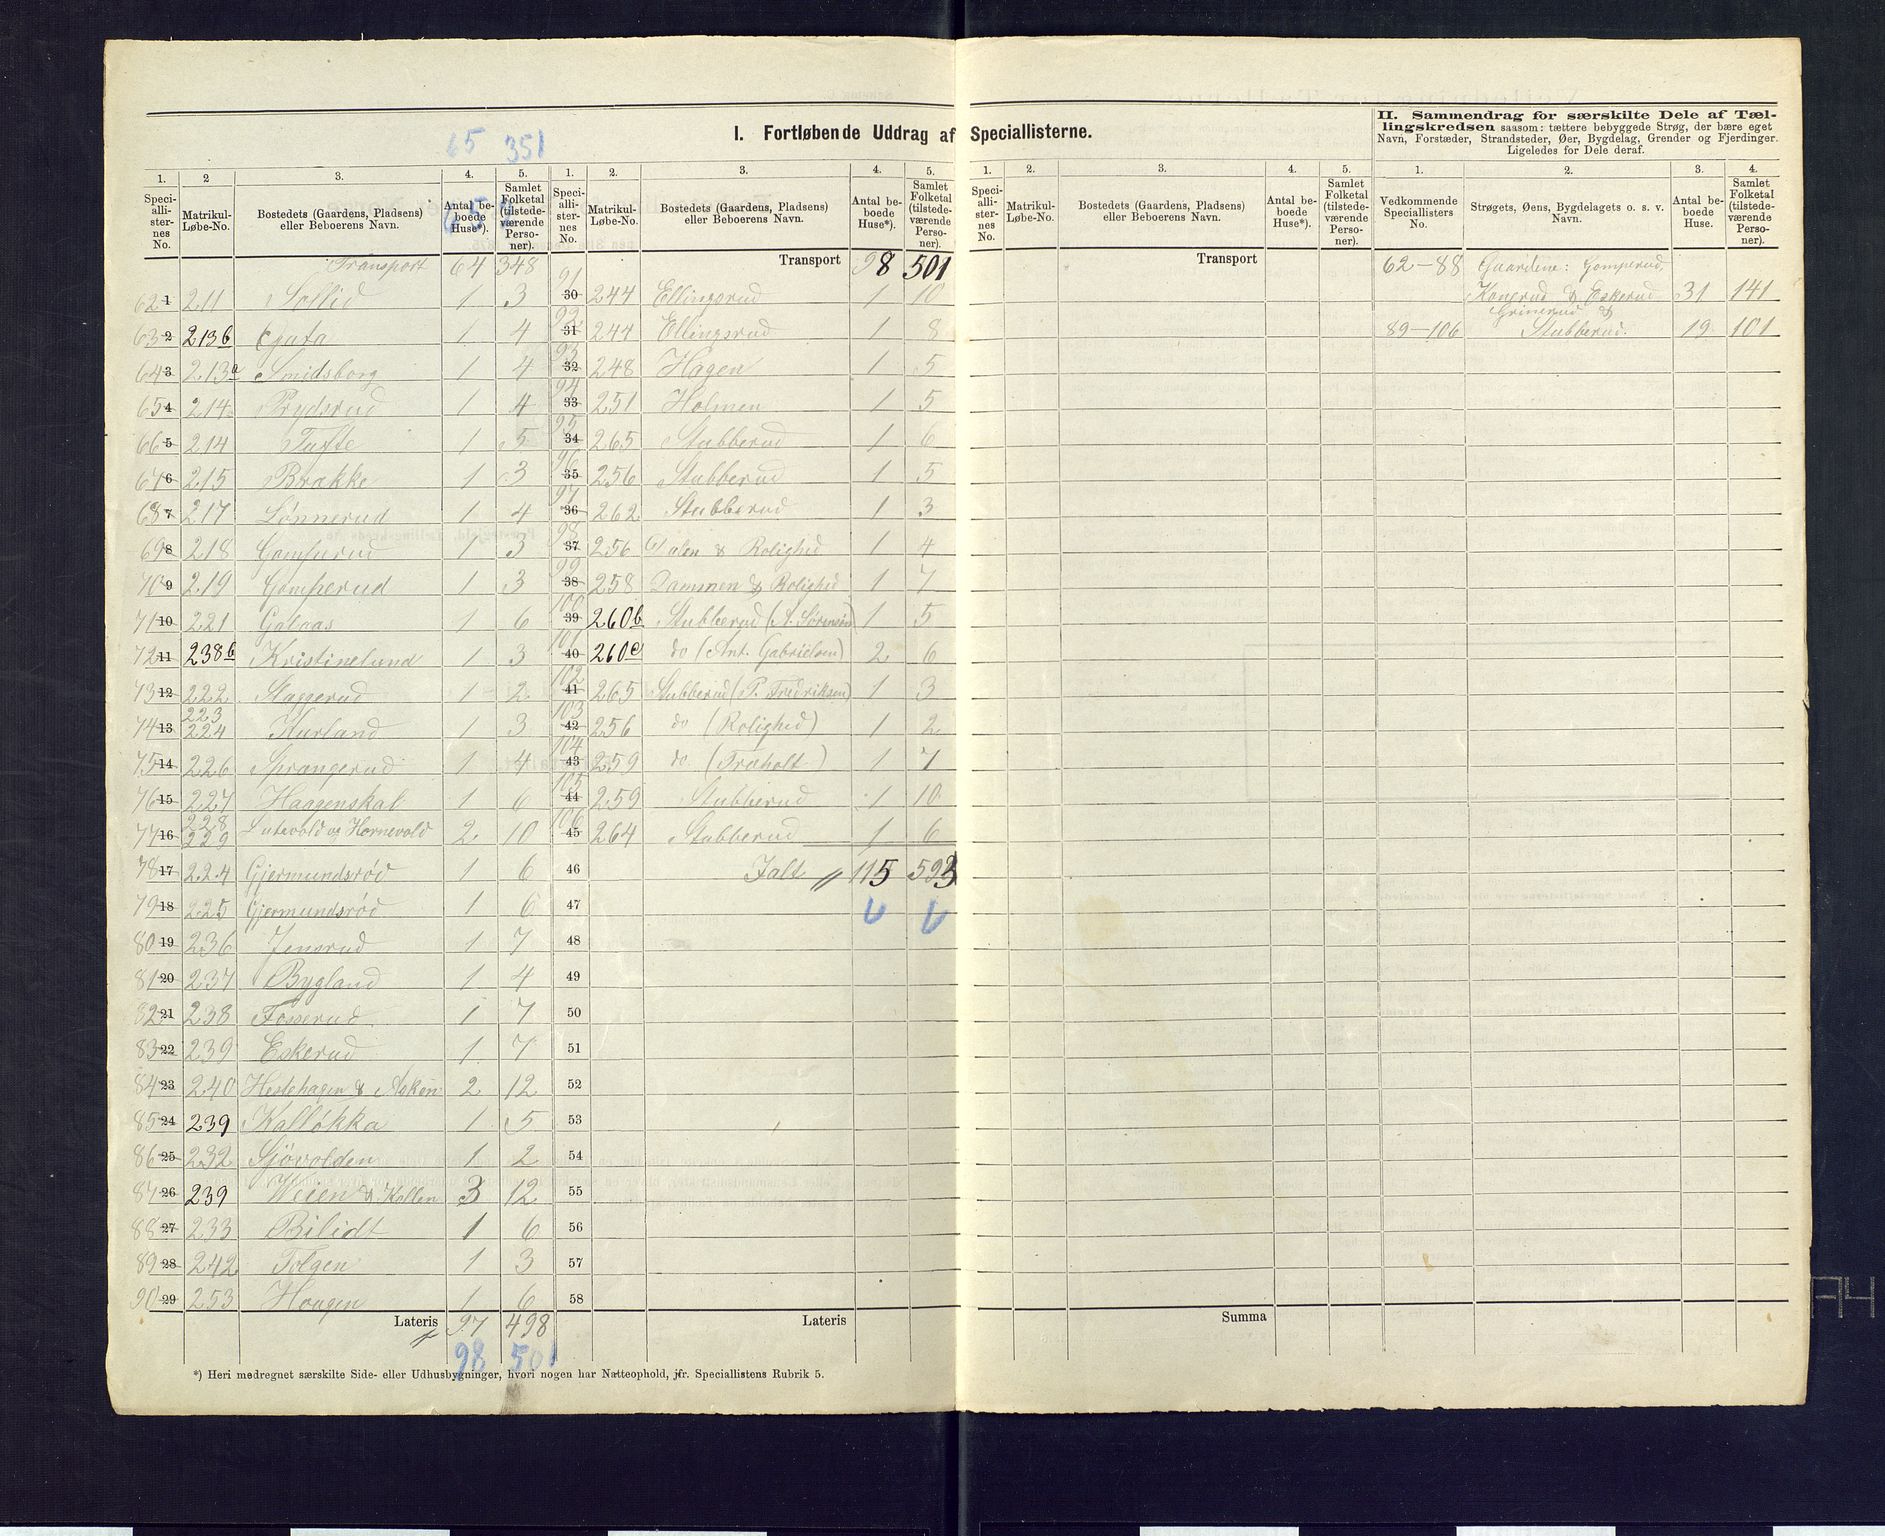 I. Fortløbende Uddrag af Speciallisterne.
II. Sammendrag for særskilte Dele af Tæl-
lingskredsen saasom: tættere bebyggede Strøg, der bære eget
Navn, Forstæder, Strandsteder, Øer, Bygdelag, Grender og Fjerdinger.
Ligeledes for Dele deraf.
65 351
1. 2 3. 4. 5.
Speci-alli-ster-nes No. Matrikul-Løbe-No. Bostedets (Gaardens, Pladsens) eller Beboerens Navn. Antal be-boede Huse*). Samlet Folketal (tilstede-værende Perso-ner).
Transport 64 348
62 1 211 Sollid 1 3
63 2 213b Egata 1 4
64 3 213a Smidsborg 1 4
65 4 214 Prydsrud 1 4
66 5 214 Tufte 1 5
67 6 215 Brække 1 3
68 7 217 Lønnerud 1 4
69 8 218 Gamperud 1 3
70 9 219 Gomperud 1 3
71 10 221 Galaas 1 6
72 11 238b Kristinelund 1 3
73 12 222 Staggerud 1 2
74 13 223 224 Kurland 1 3
75 14 226 Sprangerud 1 4
76 15 227 Haggenskal 1 6
77 16 228 229 Lutevold og Hornevold 2 10
78 17 224 Gjermundsrød 1 6
79 18 225 Gjermundsrød 1 6
80 19 236 Jensrud 1 7
81 20 237 Bygland 1 4
82 21 238 Fosserud 1 7
83 22 239 Eskerud 1 7
84 23 240 Hestehagen & Asken 2 12
85 24 239 Kalløkka 1 5
86 25 232 Sjøvolden 1 2
87 26 239 Weien & Kollen 3 12
88 27 233 Bilidt 1 6
89 28 242 Tolgen 1 3
90 29 253 Hougen 1 6
Lateris 97 498
98 501
1. 2. 3. 4. 5.
Speci-alli-ster-nes No. Matrikul-Løbe-No. Bostedets (Gaardens, Pladsens) eller Beboerens Navn. Antal be-boede Huse*). Samlet Folketal (tilstede-værende Perso-ner).
Transport 98 501
91 30 244 Ellingsrud 1 10
92 31 244 Ellingsrud 1 8
93 32 248 Hagen 1 5
94 33 251 Holmen 1 5
95 34 265 Stubberud 1 6
96 35 256 Stubberud 1 5
97 36 262 Stubberud 1 3
98 37 256 Dalen & Rolighed 1 4
99 38 258 Dammen & Rolighed 1 7
100 39 260b Stubberud (A. Sørensøn) 1 5
101 40 260c do (Ant. Gabrielsen) 2 6
102 41 265 Stubberud (P. Fredriksen) 1 3
103 42 256 do (Rolighed) 1 2
104 43 259 do (Træholt) 1 7
105 44 259 Stubberud 1 10
106 45 264 Stubberud 1 6
46 Ialt 115 593
47
48
49
50
51
52
53
54
55
56
57
58
Lateris
*) Heri medregnet særskilte Side- eller Udhusbygninger, hvori nogen har Natteophold, jfr. Speciallistens Rubrik 5.
1. 2. 3. 4. 5.
Speci-alli-ster-nes No. Matrikul-Løbe-No. Bostedets (Gaardens, Pladsens) eller Beboerens Navn. Antal be-boede Huse*). Samlet Folketal (tilstede-værende Perso-ner).
Transport
Summa
1. 2. 3. 4.
Vedkommende Speciallisters No. Strøgets, Øens, Bygdelagets o. s. v. Navn. Antal be-boede Huse. Samlet Folketal (tilstede-værende Perso-ner).
62–88 Gaardene: Gomperud,
Kongrud & Eskerud 31 141
Grinerud &
89–106 Stubberud. 19 101